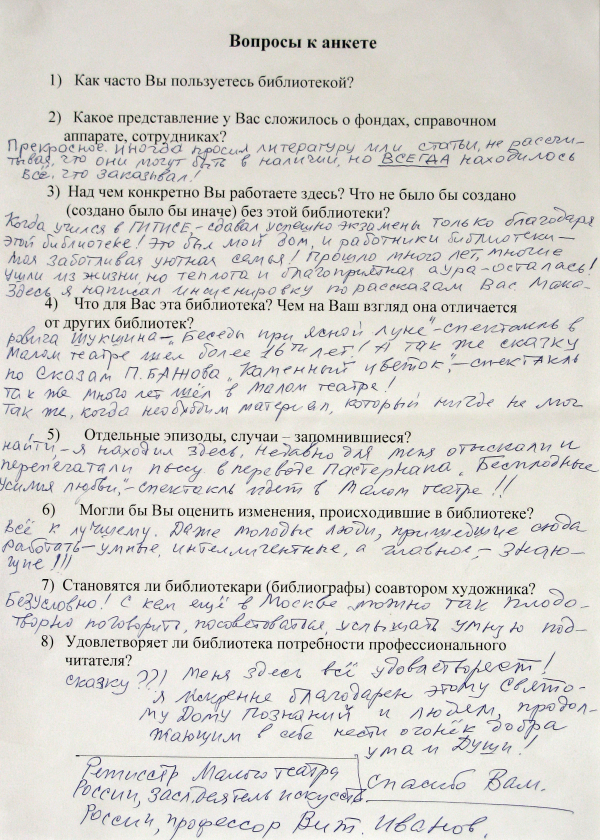 Вопросы к анкете
1) Как часто Вы пользуетесь библиотекой?
2) Какое представление у Вас сложилось о фондах, справочном
аппарате, сотрудниках?
Прекрасное. иногда просил литературу или статьи, не рассчи-
тывая, что они могут быть в наличии, но ВСЕГДА находилось
всё, что заказывал!
3) Над чем конкретно Вы работаете здесь? Что не было бы создано
(создано было бы иначе) без этой библиотеки?
Когда учился в ГИТИСЕ,– сдавал успешно экзамены только благодаря
этой библиотеке! Это был мой дом, и работники библиотеки–
моя заботливая уютная семья! Прошло много лет, многие
ушли из жизни, но теплота и благоприятная аура–осталась!
Здесь я написал инсценировку по рассказам Вас. Мака-
4) Что для Вас эта библиотека? Чем на Ваш взгляд она отличается
от других библиотек?
ровича Шукшина–„Беседы при ясной луне"–спектакль в
Малом театре шел более 16ти лет! А так же сказку
по сказам П. БАЖОВА „Каменный цветок",–спектакль
так же много лет шёл в Малом театре!
Так же, когда необходим материал, который нигде не мог
5) Отдельные эпизоды, случаи – запомнившиеся?
найти,–я находил здесь. Недавно для меня отыскали и
перепечатали пьесу в переводе Пастернака „Бесплодные
усилия любви,"–спектакль идёт в Малом театре!!
6) Могли бы Вы оценить изменения, происходившие в библиотеке?
Всё к лучшему. Даже молодые люди, пришедшие сюда
работать–умные, интеллигентные, а главное,– знаю-
щие!!!
7) Становятся ли библиотекари (библиографы) соавтором художника?
Безусловно! С кем ещё в Москве можно так плодо-
творно поговорить, посоветоваться, услышать умную под-
8) Удовлетворяет ли библиотека потребности профессионального
читателя?
сказку???) Меня здесь всё удовлетворяет!
Я искренне благодарен этому Свято-
му Дому Познаний и людям, продол-
жающим в себе нести огонёк добра
ума и Души!
Режиссёр Малого театра
России, Засл. деятель искусств
России, профессор Вит. Иванов.
Спасибо Вам.